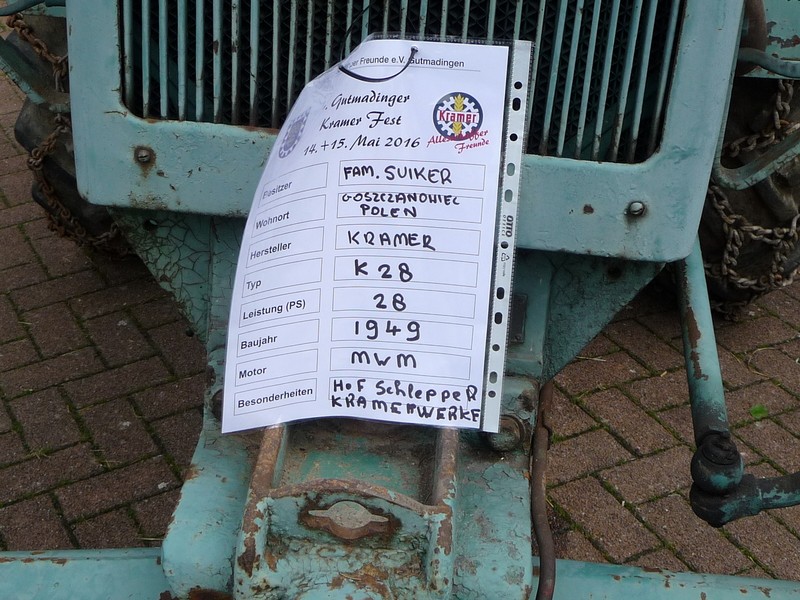 Freunde e.V. Gutmadingen
. Gutmadinger
Kramer Fest
14. + 15. Mai 2016
Kramer
Freunde
Besitzer FAM. SUIKER
Wohnort GOSZCZANOWIEC POLEN
Hersteller KRAMER
Typ K 28
Leistung (PS) 28
Baujahr 1949
Motor MWM
Besonderheiten HoF Schlepper KRAMERWERKE
OTTO